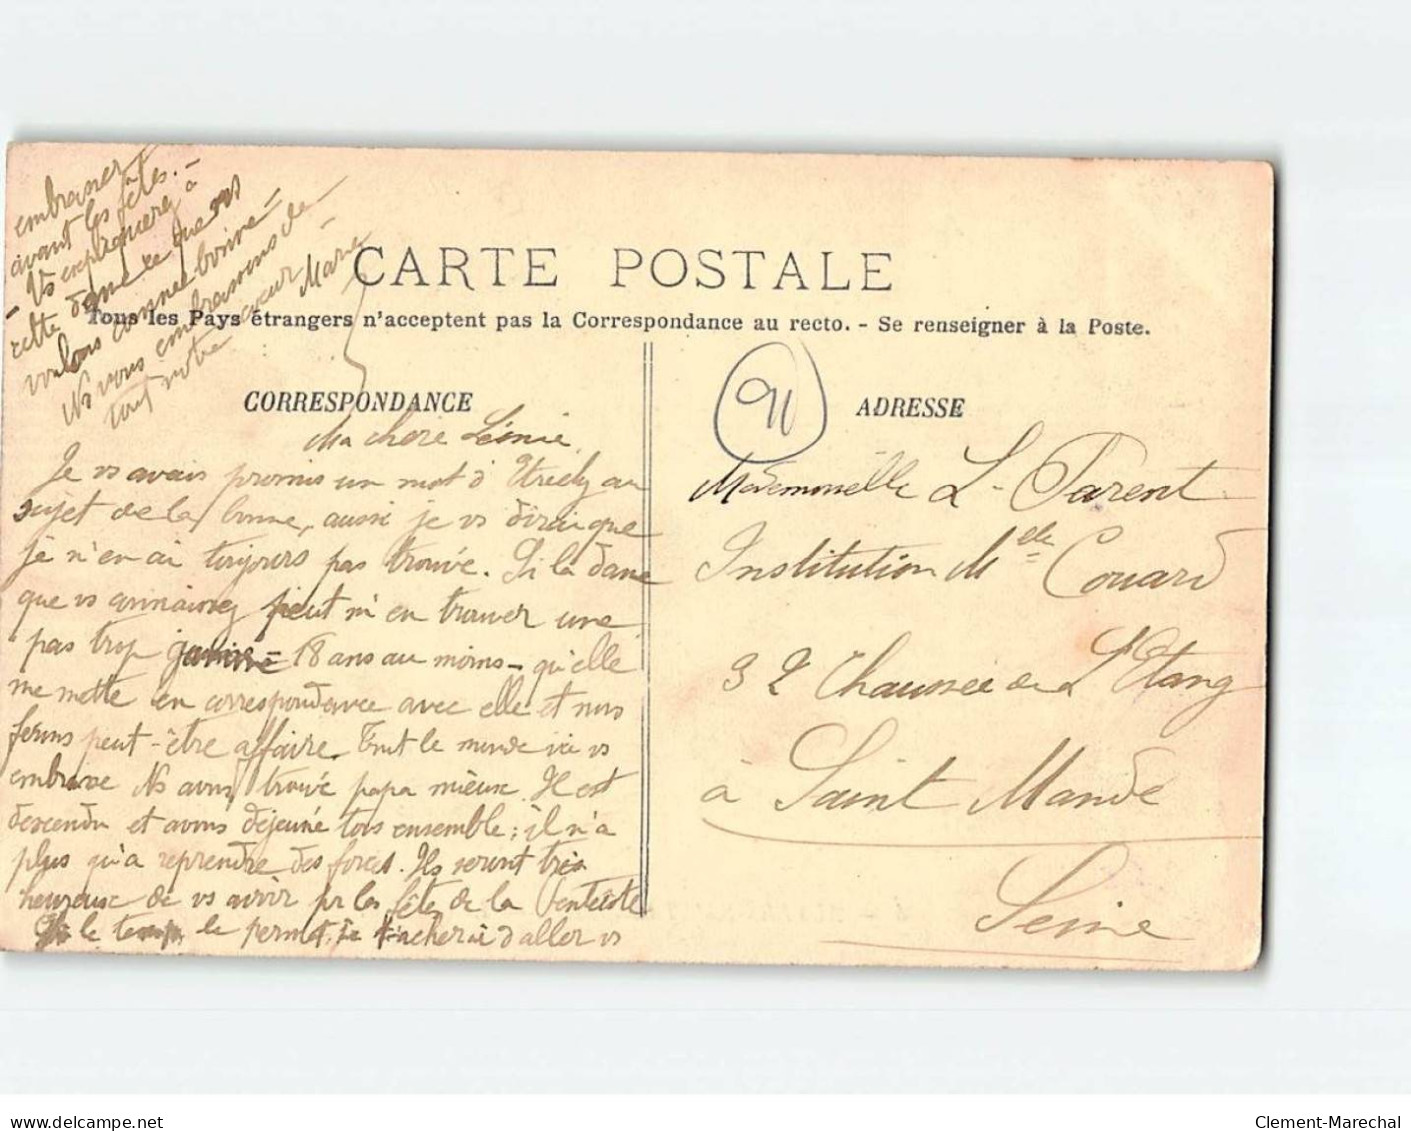 CARTE POSTALE
Tous les Pays étrangers n'acceptent pas la Correspondance au recto. - Se renseigner à la Poste.
CORRESPONDANCE
Ma chère Léonie,
Je vs avais promis un mot d'Etréchy au
sujet de la bonne, aussi je vs dirai que
je n'en ai toujours pas trouvé. Si la dame
que vs connaissez peut m'en trouver une
pas trop jeune - 18 ans au moins - qu'elle
me mette en correspondance avec elle et nous
ferons peut-être affaire. Tout le monde ici vs
embrasse Ns avons trouvé papa mieux. Il est
descendu et avons déjeuné tous ensemble ; il n'a
plus qu'à reprendre des forces. Ils seront très
heureux de vs avoir pr les fêtes de la Pentecôte
Si le temps le permet, je tâcherai d'aller vs
embrasser
avant les fêtes. -
- Vs expliquerez à
cette dame ce que vs
voulons comme bonne -
Ns vous embrassons de
tout notre cœur -
Marie
91
ADRESSE
Mademoiselle L. Parent
Institution Melle Couard
32 Chaussée de L'Etang
à Saint Mandé
Seine
Clement-Marechal
www.delcampe.net